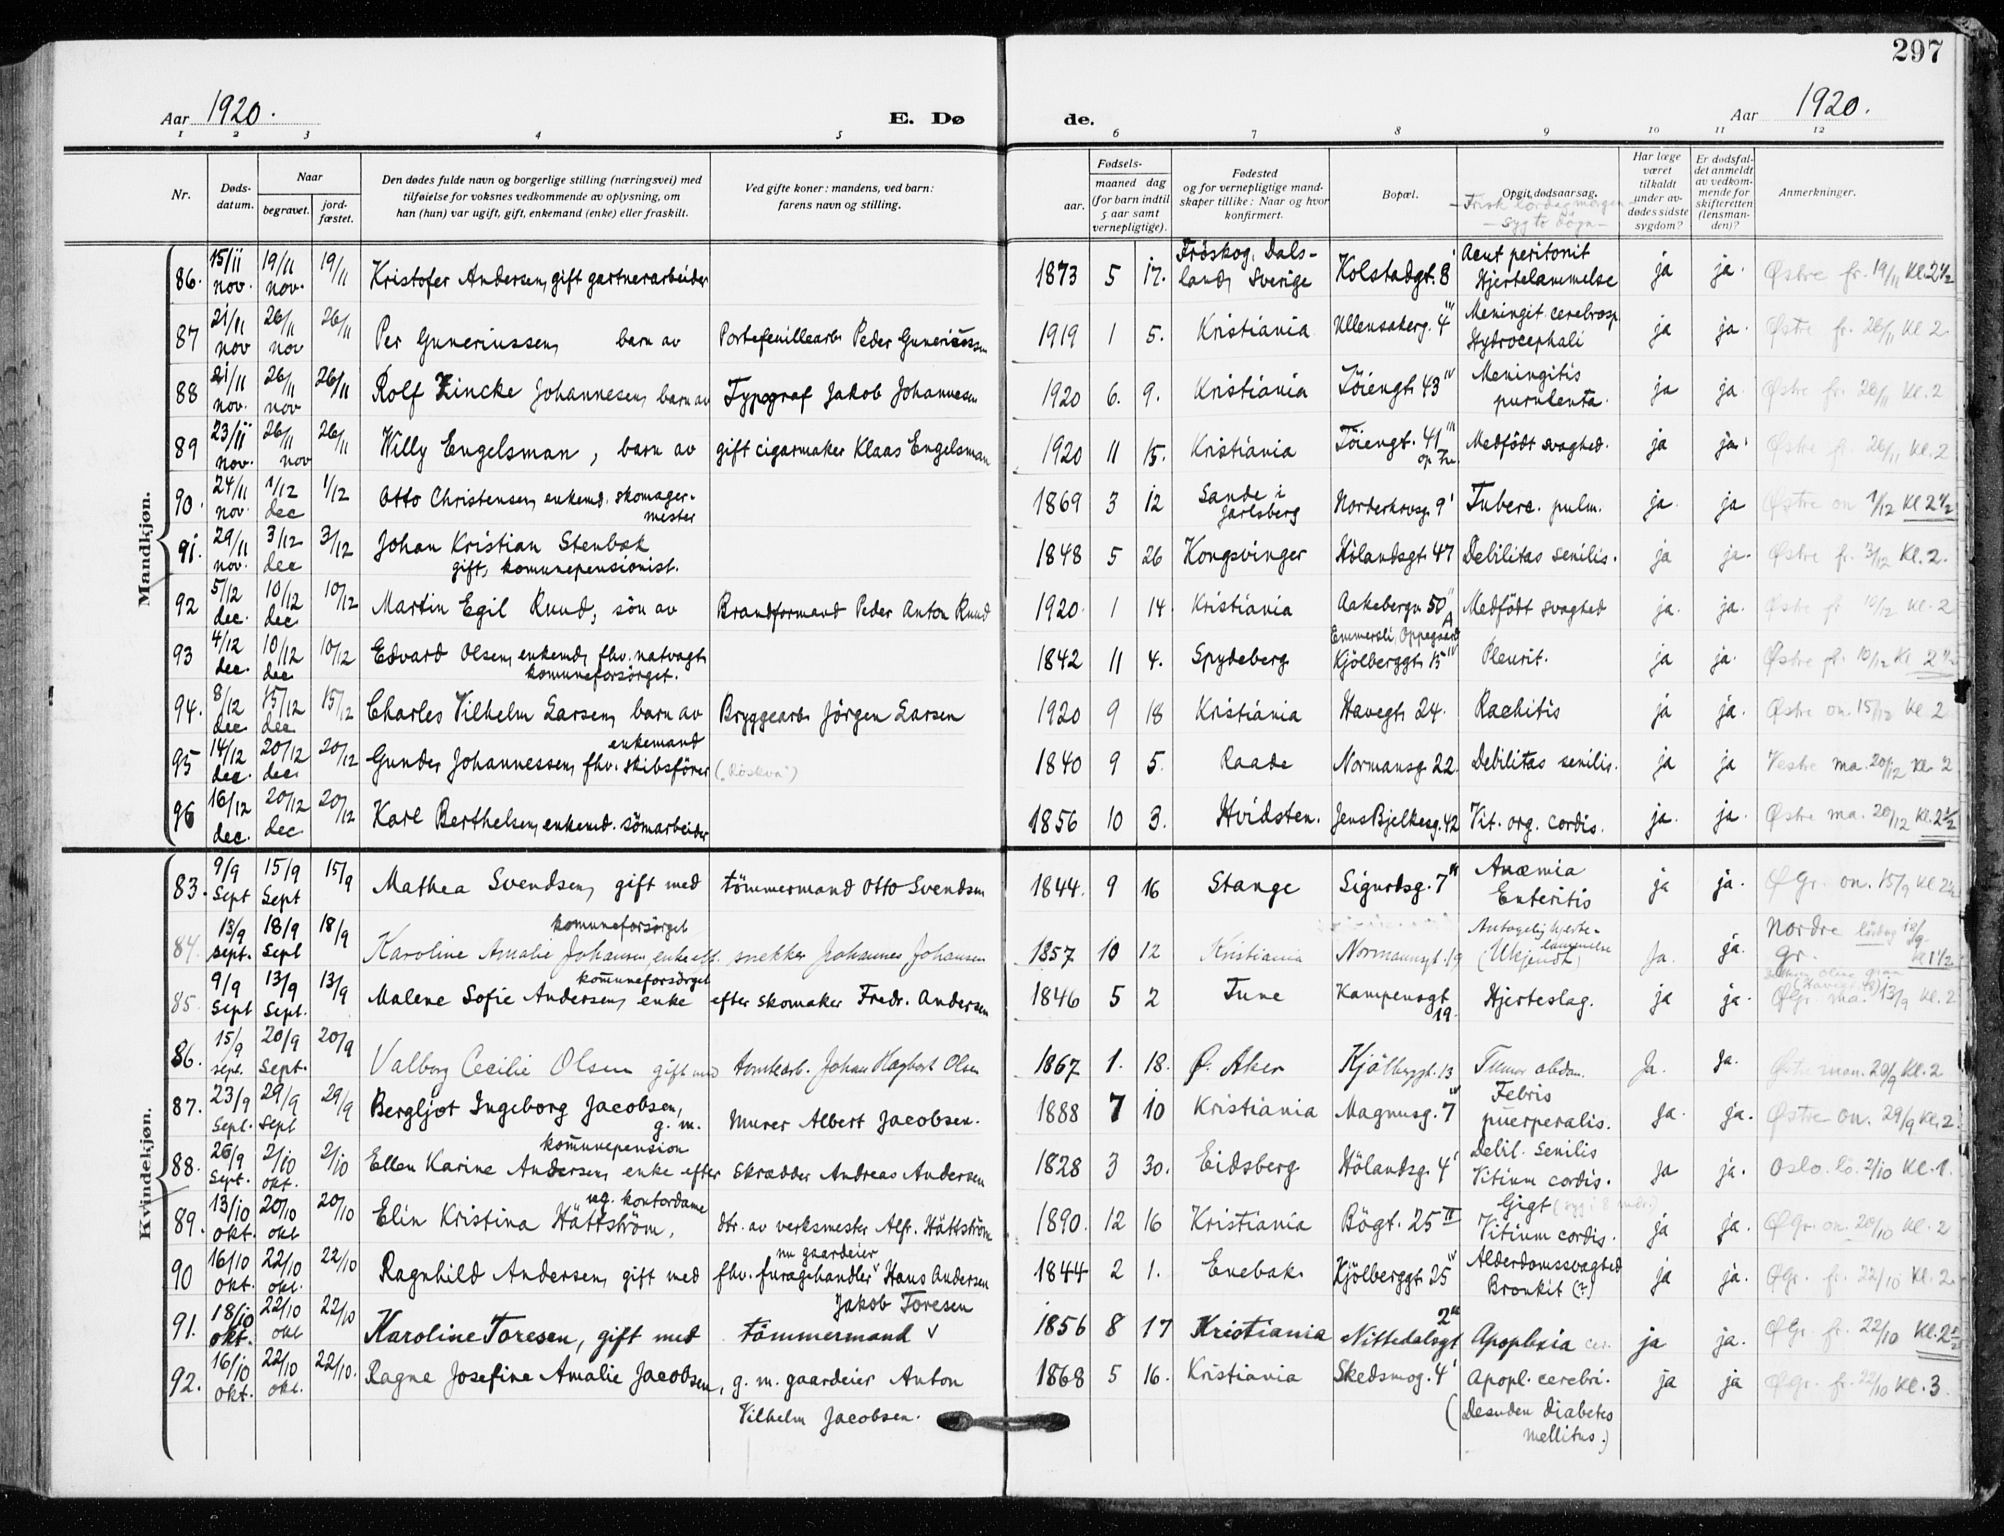 297
Aar 1920. E. Dø de. Aar 1920.
1 2 3 4 5 6 7 8 9 10 11 12
Nr. Døds-datum. Naar begravet. jord-fæstet. Den dødes fulde navn og borgerlige stilling (næringsvei) med tilføielse for voksnes vedkommende av oplysning, om han (hun) var ugift, gift, enkemand (enke) eller fraskilt. Ved gifte koner: mandens, ved barn: farens navn og stilling. Fødsels- aar. maaned dag (for barn indtil 5 aar samt vernepligtige). Fødested og for vernepligtige mandskaper tillike: Naar og hvor konfirmert. Bopæl. Opgit dødsaarsag. Har læge været tilkaldt under avdødes sidste sygdom? Er dødsfaldet anmeldt av vedkommende for skifteretten (lensmanden)? Anmerkninger.
Frisk lørdagmorgen
- syg to døgn -
Mandkjøn.
86. 15/11 nov. 19/11 nov. 19/11 Kristofer Andersen, gift gartnerarbeider 1873 5 17. Fröskog, Dalsland, Sverige Kolstadgt. 8' Acut peritonit Hjertelammelse ja ja. Østre fr. 19/11 Kl. 2 1/2
87 21/11 nov 26/11 nov 26/11 Per Guneriussen, barn av Portefeuillearb. Peder Guneriussen 1919 1 5. Kristiania Ullensakerg. 4''' Meningit. cerebrosp. Hydrocephali ja ja. Østre fr. 26/11 Kl. 2
88 21/11 nov. 26/11 nov 26/11 Rolf Zincke Johannesen, barn av Typograf Jakob Johannesen 1920 6. 9. Kristiania Töiengt. 43 IV Meningitis purulenta. ja ja. Østre fr. 26/11 Kl. 2
89 23/11 nov. 26/11 nov 26/11 Willy Engelsman, barn av gift cigarmaker Klaas Engelsman 1920 11 15. Kristiania Töiengt. 41''' Medfödt svaghed. ja ja. Østre fr. 26/11 Kl. 2
90. 24/11 nov. 1/12 dec 1/12 Otto Christensen, enkemd. skomager-mester 1869 3 12 Sande i Jarlsberg Norderhovsg. 9' Tuberc. pulm. ja ja Østre on 1/12 Kl. 2 1/2
91. 29/11 nov. 3/12 dec 3/12 Johan Kristian Stenbæk gift, komunepensionist. 1848 5 26 Kongsvinger Hölandsgt. 47 Debilitas senilis. ja ja. Østre fr. 3/12 Kl. 2.
92 5/12 dec. 10/12 dec. 10/12 Martin Egil Ruud, sön av Brandformand Peder Anton Ruud 1920. 1 14. Kristiania Aakebergv. 50'' A Medfödt svaghed ja. ja. Østre fr 10/12 Kl. 2
93 4/12 dec. 10/12 dec 10/12 Edvard Olsen, enkemd, fhv. natvagt, komuneforsörget. 1842 11 4. Spydeberg Emmersli, Oppegaard Kjölberggt. 15 IV Pleurit. ja ja. Østre fr. 10/12 Kl 2 1/2
94. 8/12 dec 15/12 dec 15/12 Charles Vilhelm Larsen, barn av Bryggearb. Jörgen Larsen 1920 9 18 Kristiania Havegt. 24. Rachitis ja ja. Østre on. 15/12 Kl. 2
95 14/12 dec. 20/12 dec. 20/12 Gunder Johannessen, enkemand fhv. skibsförer („Röskva") 1840 9 5. Raade Normansg. 22. Debilitas senilis. ja ja Vestre ma. 20/12 Kl. 2
96 16/12 dec. 20/12 dec 20/12 Karl Berthelsen, enkemd. sömarbeider 1856 10 3. Hvidsten. Jens Bjelkesg. 42 Vit. org. cordis. ja. ja. Østre ma. 20/12 Kl. 2 1/2
Kvindekjøn.
83. 9/9 Sept 15/9 Sept 15/9 Mathea Svendsen, gift med tömmermand Otto Svendsen 1844. 9 16 Stange Sigurdsg. 7''' Anæmia Enteritis ja ja. ØGr. on. 15/9 Kl. 2 1/2
84. 13/9 sept. 18/9 Sept 18/9 komuneforsörget Karoline Amalie Johansen enke eft. snekker Johannes Johansen 1857 10 12 Kristiania Normannsgt. 19 Antagelig hjerte-lammelse (Ukjendt) Ja. ja. Nordre gr. lördag 18/9 Kl 1 1/2
85. 9/9 Sept 13/9 Sept. 13/9 komuneforsörget Malene Sofie Andersen, enke efter skomaker Fredr. Andersen 1846 5 2 Tune Kampensgt. 19. Hjerteslag. ja ja. ØGr. ma. 13/9 Kl. 2
86. 15/9 sept. 20/9 Sept. 20/9 Valborg Cecilie Olsen gift med tomtearb. Johan Hagbart Olsen 1867 1. 18. Ø. Aker Kjölberggt. 13 Tumor abdom. Ja. Ja. Østre man. 20/9 Kl. 2
87. 23/9 Sept. 29/9 Sept 29/9 Bergljot Ingeborg Jacobsen, g. m. Murer Albert Jacobsen. 1888 7 10 Kristiania Magnusg. 7'' Febris puerperalis. ja. ja. Østre on. 29/9 Kl. 2.
88. 26/9 Sept. 2/10 okt. 2/10 komunepension Ellen Karine Andersen, enke efter skrædder Andreas Andersen 1828 3 30. Eidsberg Hölandsg. 4' Debil. Senilis Vitium cordis. ja ja. Oslo. lö. 2/10 Kl. 1.
89. 13/10 okt. 20/10 okt 20/10 ug. kontordame Elin Kristina Hättström, dtr. av verksmester Alfr. Hättström 1890. 12 16 Kristiania Bögt. 25 II Gigt (syg i 8 mdr.) Vitium cordis. ja ja. ØGr. on. 20/10 Kl. 2
90 16/10 okt. 22/10 okt. 22/10 Ragnhild Andersen, gift med fhv. furagehandler nu gaardeier Hans Andersen 1844 2 1. Enebak. Kjölberggt. 25 IV Alderdomssvaghed Bronkit (?) ja ja. ØGr. fr. 22/10 Kl. 2.
91. 18/10 okt. 22/10 okt 22/10 Karoline Toresen, gift med tömmermand v Jakob Toresen 1856 8 17 Kristiania Nittedalsgt 2''' Apoplexia cer. ja ja. ØGr. fr. 22/10 Kl. 2 1/2
92. 16/10 okt. 22/10 okt. 22/10. Ragna Josefine Amalie Jacobsen, g. m. gaardeier Anton Vilhelm Jacobsen. 1868 5 16. Kristiania Skedsmog. 4' Apopl. cerebri. (Desuden diabetes mellitus.) ja ja ØGr. fr. 22/10 Kl. 3.